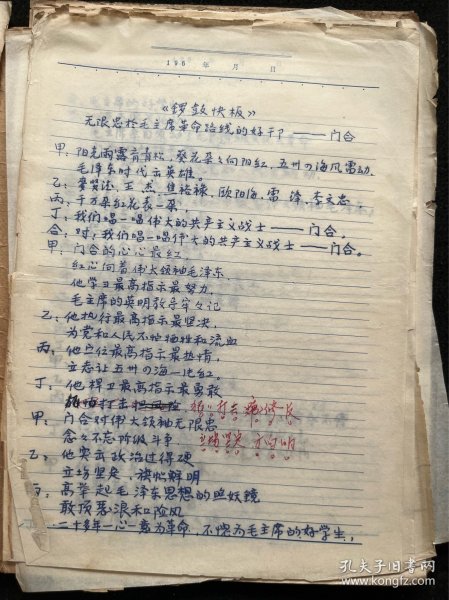 196 年 月 日
《锣鼓快板》
无限忠于毛主席革命路线的好干卩——门合
甲：阳光雨露育青松，葵花朵々向阳红，五州四海风雷动，
毛泽东时代出英雄。
乙：麦贤得，王杰，焦裕禄，欧阳海，雷锋，李文忠，
丙：千万朵红花表一朵，
丁：我们唱一唱伟大的共产主义战士——门合。
合：对，我们唱一唱伟大的共产主义战士——门合。
甲：门合的心々最红，
红心向着伟大领袖毛泽东，
他学习最高指示最努力，
毛主席的英明教导牢々记
乙：他执行最高指示最坚决，
为党和人民不怕牺牲和流血
丙：他宣传最高指示最热情，
立志让五州四海一片红。
丁：他捍卫最高指示最勇敢
打击
甲：门合对伟大领袖无限忠
念々不忘阶级斗争
乙：他突出政治过得硬
立场坚定，旗帜鲜明
丙：高举起毛泽东思想的照妖镜
敢顶恶浪和险风
丁：二十多年一心一意为革命，不愧为毛主席的好学生，
孔夫子旧书网
kongfz.com